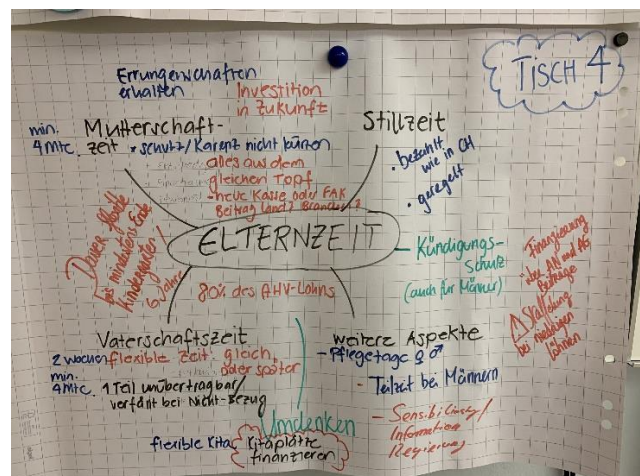 TISCH 4
Errungenschaften
erhalten
Investition
in Zukunft
min.
4 Mtc.
Mutterschaft-
zeit
* Schutz/Karenz nicht kürzen
alles aus dem
gleichen Topf
-neue Kasse oder FAK
Beitrag Land? Branchen?
Stillzeit
• bezahlt
wie in CH
• geregelt
ELTERNZEIT
Kündigungs-
schutz
(auch für Männer)
80% des AHV-Lohns
bis mindestens Ende
Kindergarten!
6 Jahre
Finanzierung
über AN und AG
Beiträge
bei niedrigen
Löhnen
Vaterschaftszeit
2 Wochen
flexible Zeit: gleich
oder später
min.
4 Mtc.
1 Teil unübertragbar/
verfällt bei Nicht-Bezug
weitere Aspekte
- Pflegetage ♀ ♂
- Teilzeit bei Männern
- Sensibilisierung/
Information
Regierung
Umdenken
flexible Kita
Kitaplätze
finanzieren